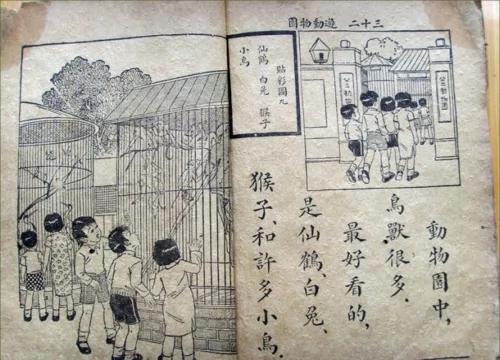 三十二 遊動物園
貼彩圖九
仙鶴 白兔 猴子
小鳥
動物園中，
鳥獸很多．
最好看的，
是仙鶴、白兔、
猴子、和許多小鳥．